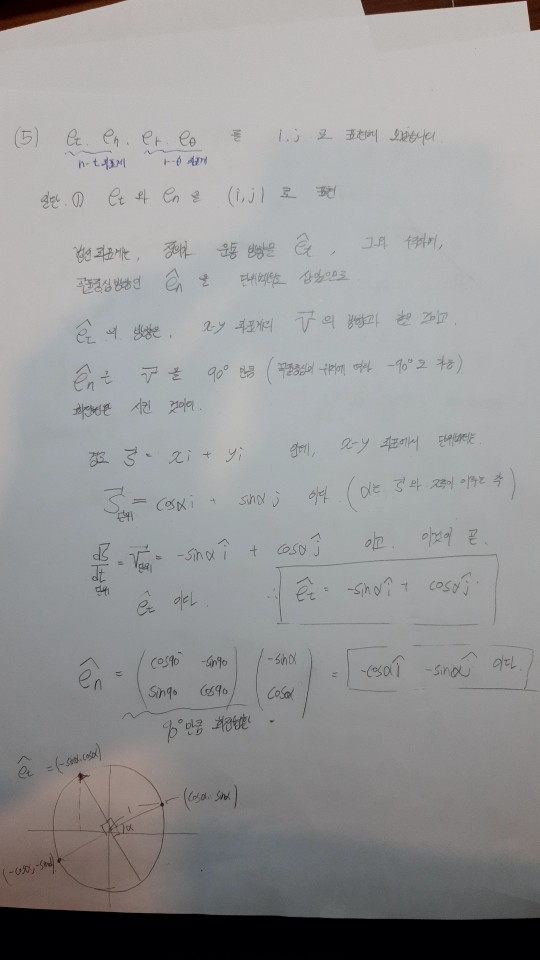 (5) e_t, e_n, e_r, e_θ 를 i, j 로 표현해 보겠습니다
n-t 좌표계 r-θ 좌표계
일단 ① e_t 와 e_n 을 (i, j) 로 표현
좌표계는, 운동 방향은 ê_t, 그의
곡률중심방향인 ê_n 을 단위벡터로 삼음으로
ê_t 의 방향은, x-y 좌표계의 v⃗ 의 방향과 같은 것이고.
ê_n 은 v⃗ 를 90° 만큼 (곡률중심의 위치에 따라 -90° 도 가능)
회전변환 시킨 것이며.
S⃗ = xi + yj 인데, x-y 좌표에서 단위벡터는
S⃗_단위 = cosα i + sinα j 이다. (α는 S⃗ 와 x축이 이루는 각)
dS⃗/dt_단위 = V⃗_단위 = -sinα î + cosα ĵ 이고. 이것이 곧.
ê_t 이다. ∴ ê_t = -sinα î + cosα ĵ
ê_n = (cos90 -sin90 sin90 cos90) (-sinα cosα) = -cosα î -sinα ĵ 이다.
90°만큼 회전변환
ê_t = (-sinα, cosα)
(cosα, sinα)
1
α
(-cosα, -sinα)